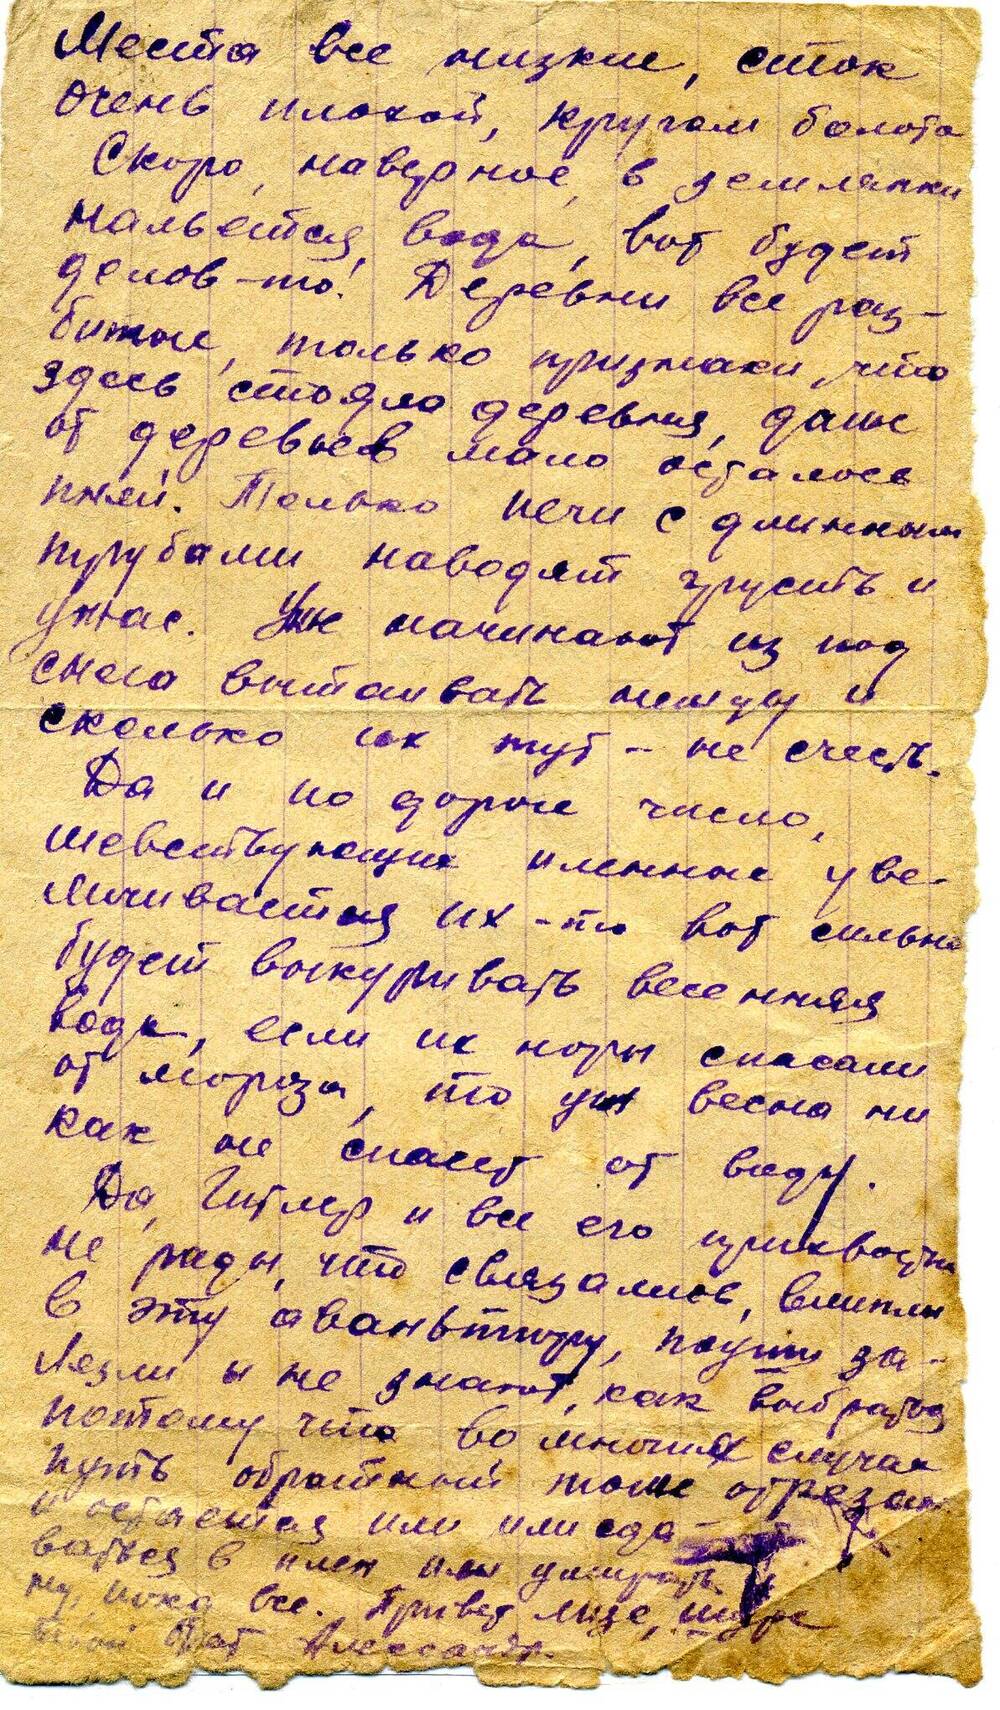 Места все низкие, сток
очень плохой, кругом болота
Скоро, наверное, в землянки
нальется вода, вот будет
делов-то! Деревни все раз-
битые, только признаки, что
здесь стояло деревня, даже
от деревьев мало осталось
пней. Только печи с длинным
трубами наводят грусить и
ужас. Уже начинают из под
снега вытаивать немцы и
сколько их тут - не счесть.
Да и по дороге число,
шевствующих пленные уве-
личивается их-то вот сильно
будет выкуривать весенняя
вода, если их норы спасали
от мороза, то уж весна ни
как не спасет от воды.
Да, Гитлер и все его прихвостни
не рады, что связались, влипли
в эту аваньтюру, почти за-
лезли и не знают, как выбратся
потому что во многих случая
путь обратный тоже отрезан
и остается или или сда-
ваться в плен или умирать.
ну, пока все. Привет Лизе, Шуре
твой брат Алессандр.